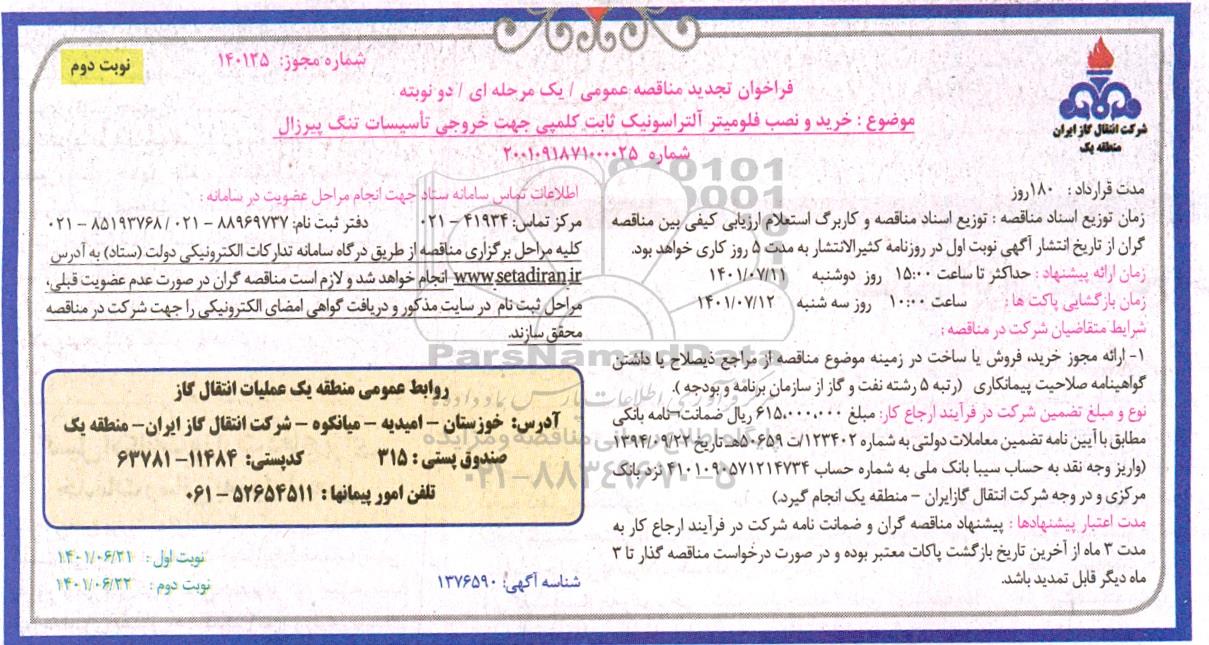 نوبت دوم
شماره مجوز: ۱۴۰۱۲۵
شرکت انتقال گاز ایران
منطقه یک
فراخوان تجدید مناقصه عمومی / یک مرحله ای / دو نوبته
موضوع : خرید و نصب فلومیتر آلتراسونیک ثابت کلمپی جهت خروجی تأسیسات تنگ پیرزال
شماره ۲۰۰۱۰۹۱۸۷۱۰۰۰۰۲۵
مدت قرارداد : ۱۸۰روز
زمان توزیع اسناد مناقصه : توزیع اسناد مناقصه و کاربرگ استعلام ارزیابی کیفی بین مناقصه
گران از تاریخ انتشار آگهی نوبت اول در روزنامه کثیرالانتشار به مدت ۵ روز کاری خواهد بود.
زمان ارائه پیشنهاد : حداکثر تا ساعت ۱۵:۰۰ روز دوشنبه ۱۴۰۱/۰۷/۱۱
زمان بازگشایی پاکت ها : ساعت ۱۰:۰۰ روز سه شنبه ۱۴۰۱/۰۷/۱۲
شرایط متقاضیان شرکت در مناقصه :
۱- ارائه مجوز خرید، فروش یا ساخت در زمینه موضوع مناقصه از مراجع ذیصلاح یا داشتن
گواهینامه صلاحیت پیمانکاری (رتبه ۵ رشته نفت و گاز از سازمان برنامه و بودجه ).
نوع و مبلغ تضمین شرکت در فرآیند ارجاع کار: مبلغ ۶۱۵.۰۰۰.۰۰۰ ریال ضمانت نامه بانکی
مطابق با آیین نامه تضمین معاملات دولتی به شماره ۱۲۳۴۰۲/ت ۵۰۶۵۹هـ تاریخ ۱۳۹۴/۰۹/۲۲
(واریز وجه نقد به حساب سیبا بانک ملی به شماره حساب ۴۱۰۱۰۹۰۵۷۱۲۱۴۷۳۴ نزد بانک
مرکزی و در وجه شرکت انتقال گازایران - منطقه یک انجام گیرد.)
مدت اعتبار پیشنهادها : پیشنهاد مناقصه گران و ضمانت نامه شرکت در فرآیند ارجاع کار به
مدت ۳ ماه از آخرین تاریخ بازگشت پاکات معتبر بوده و در صورت درخواست مناقصه گذار تا ۳
ماه دیگر قابل تمدید باشد.
اطلاعات تماس سامانه ستاد جهت انجام مراحل عضویت در سامانه :
مرکز تماس: ۴۱۹۳۴ - ۰۲۱ دفتر ثبت نام: ۸۸۹۶۹۷۳۷ - ۰۲۱ / ۸۵۱۹۳۷۶۸ - ۰۲۱
کلیه مراحل برگزاری مناقصه از طریق درگاه سامانه تدارکات الکترونیکی دولت (ستاد) به آدرس
www.setadiran.ir انجام خواهد شد و لازم است مناقصه گران در صورت عدم عضویت قبلی،
مراحل ثبت نام در سایت مذکور و دریافت گواهی امضای الکترونیکی را جهت شرکت در مناقصه
محقق سازند.
روابط عمومی منطقه یک عملیات انتقال گاز
آدرس: خوزستان - امیدیه - میانکوه - شرکت انتقال گاز ایران- منطقه یک
صندوق پستی : ۳۱۵ کدپستی: ۱۱۴۸۴-۶۳۷۸۱
تلفن امور پیمانها : ۵۲۶۵۴۵۱۱ - ۰۶۱
شناسه آگهی: ۱۳۷۶۵۹۰
نوبت اول : ۱۴۰۱/۰۶/۲۱
نوبت دوم : ۱۴۰۱/۰۶/۲۲
ParsNamadData
۰۲۱-۸۸۳۴۹۶۷۰-۵